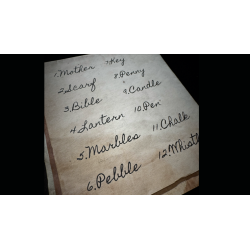 1.Mother
2.Scarf
3.Bible
4.Lantern
5.Marbles
6.Pebble
7.Key
8.Penny
9.Candle
10.Pen
11.Chalk